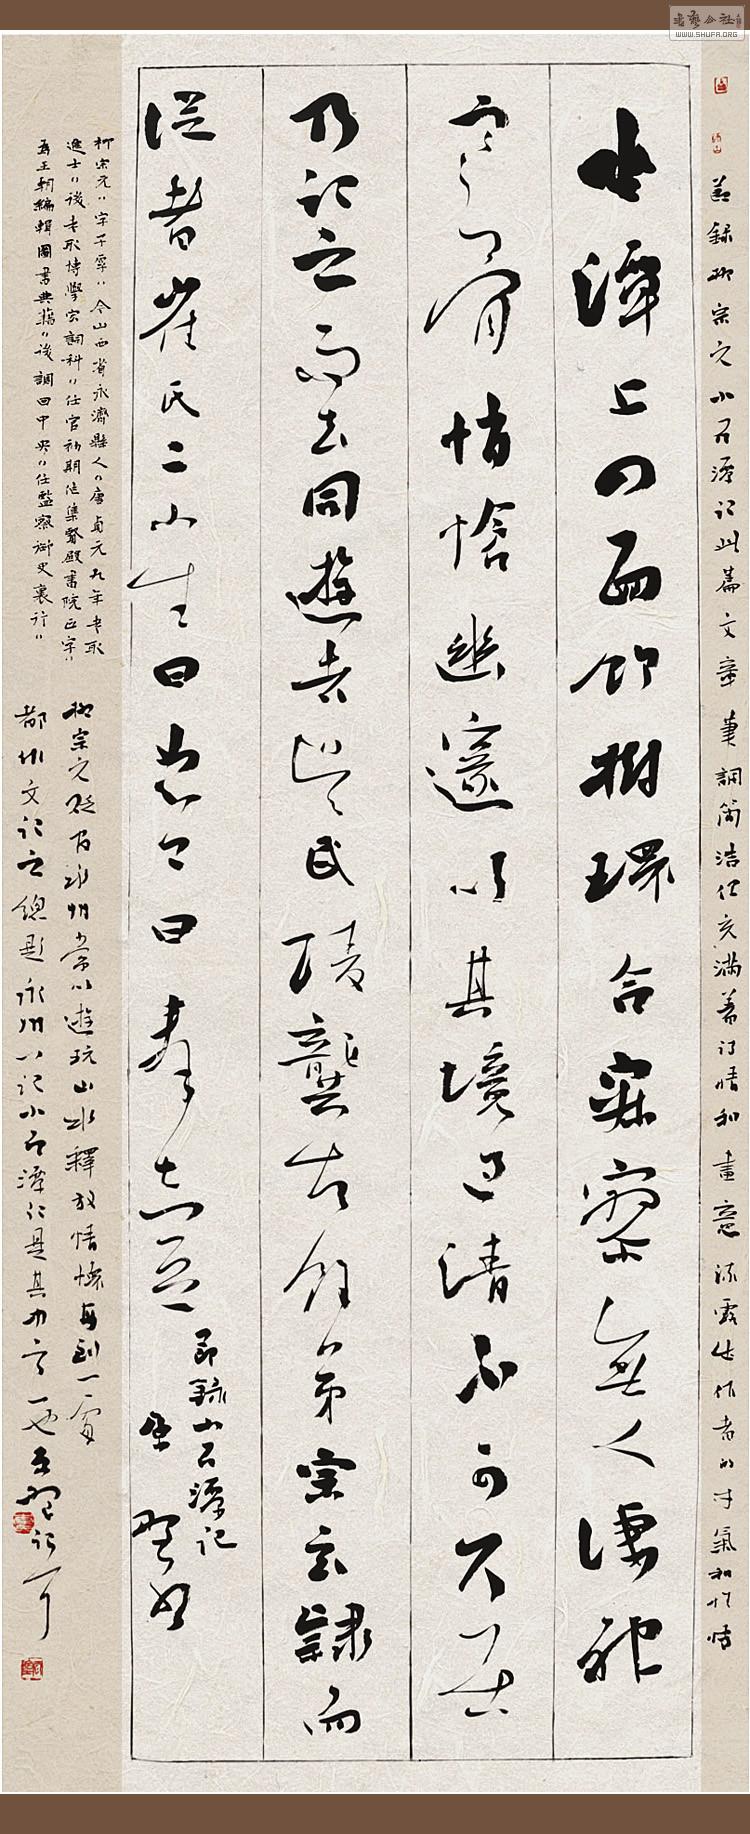 節錄柳宗元小石潭記此篇文章筆調簡潔但充滿著詩情和畫意流露出作者的才氣和性情
坐潭上四面竹樹環合寂寥無人凄神
寒骨悄愴幽邃以其境過清不可久居
乃記之而去同遊者吳武陵龔古余弟宗玄隸而
從者崔氏二小生曰恕己曰奉壹
節錄小石潭記
柳宗元字子厚今山西省永濟縣人唐貞元九年考取
進士後考取博學宏詞科任官初期任集賢殿書院正字
為王朝編輯圖書典籍後調回中央任監察御史裏行
柳宗元貶官永州常以遊玩山水釋放情懷每到一處
都作文記之總題永州八記小石潭記是其中之一也
WWW.SHUFA.ORG